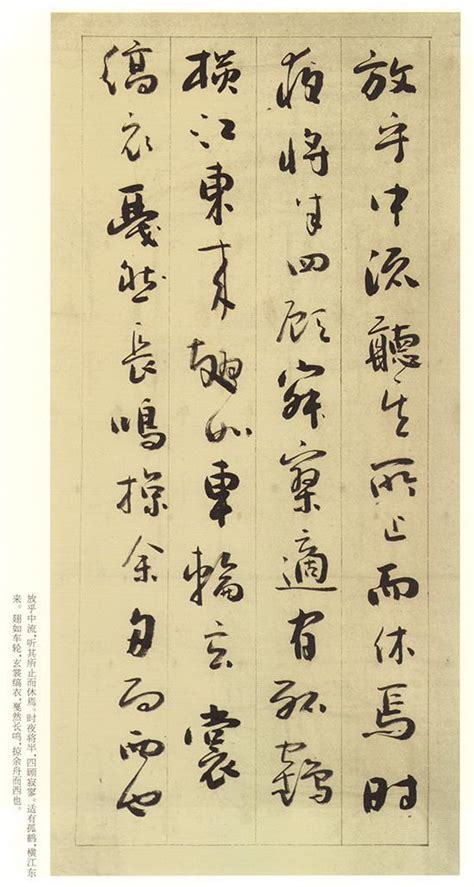 放乎中流聽其所止而休焉時
夜將半四顧寂寥適有孤鶴
橫江東來翅如車輪玄裳
縞衣戛然長鳴掠余舟而西也
放乎中流，听其所止而休焉。时夜将半，四顾寂寥。适有孤鹤，横江东
来。翅如车轮，玄裳缟衣，戛然长鸣，掠余舟而西也。